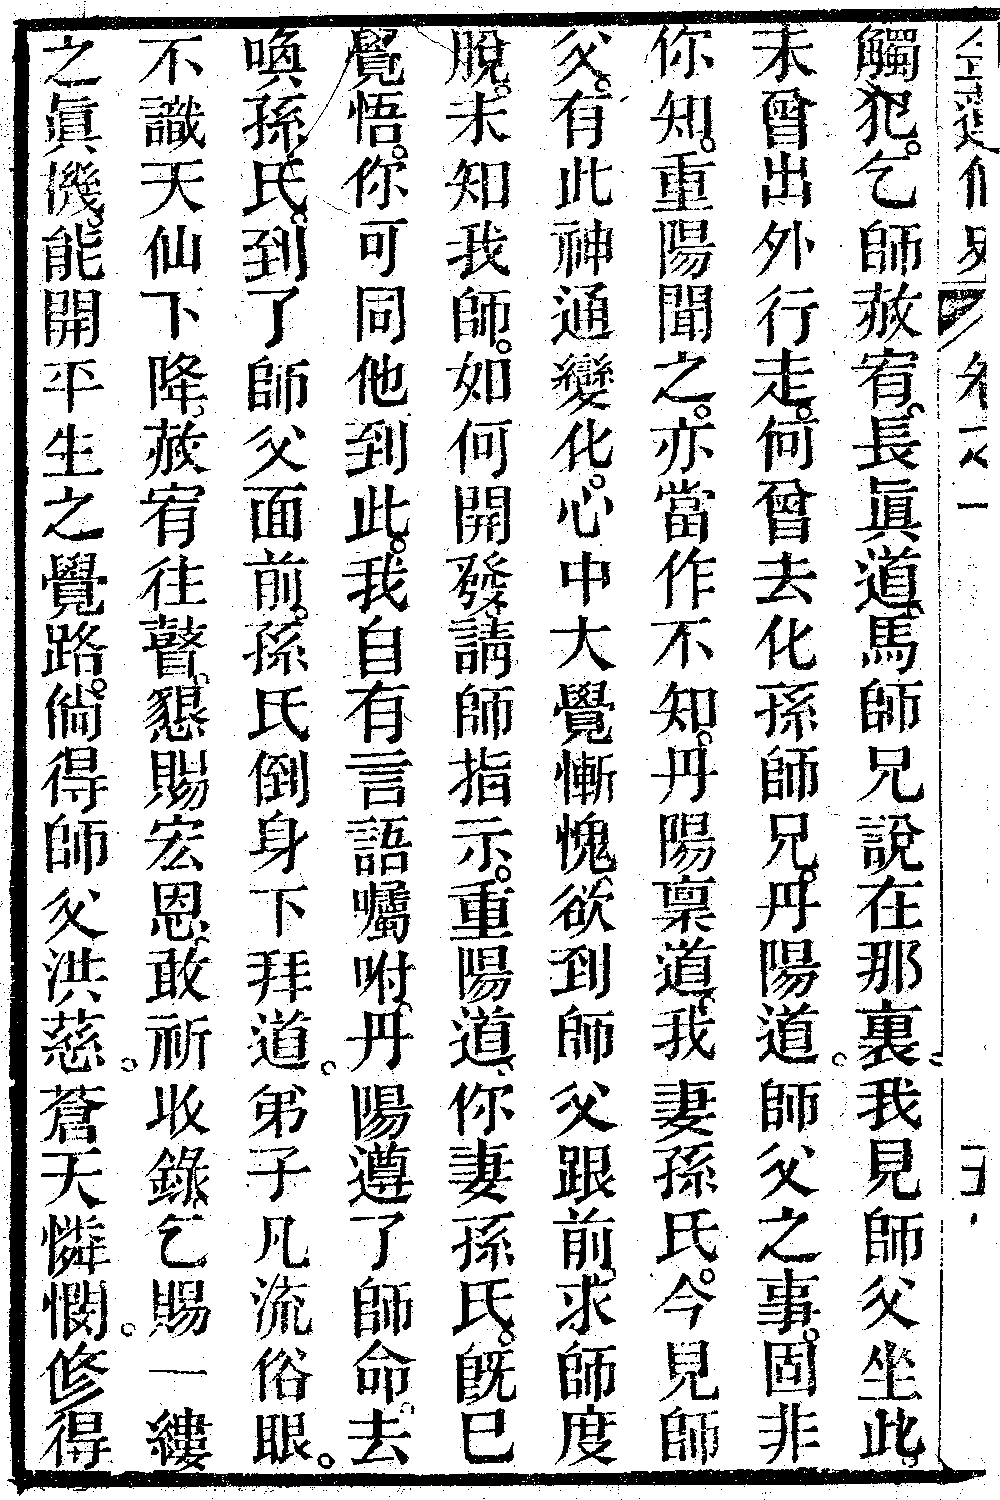 觸犯。乞師赦宥。長眞道。馬師兄說在那裏。我見師父坐此。
未曾出外行走。何曾去化孫師兄。丹陽道。師父之事。固非
你知。重陽聞之。亦當作不知。丹陽稟道。我妻孫氏。今見師
父。有此神通變化。心中大覺慚愧欲到師父跟前。求師度
脫。未知我師。如何開發。請師指示。重陽道。你妻孫氏。旣已
覺悟。你可同他到此。我自有言語囑咐。丹陽遵了師命。去
喚孫氏。到了師父面前。孫氏倒身下拜道。弟子凡流俗眼。
不識天仙下降。赦宥往瞽。懇賜宏恩。敢祈收錄。乞賜一縷
之眞機。能開平生之覺路。倘得師父洪慈。蒼天憐憫。修得